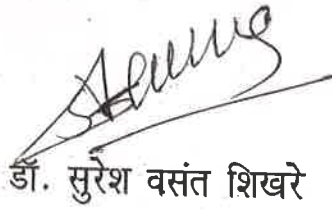 डॉ. सुरेश वसंत शिखरे